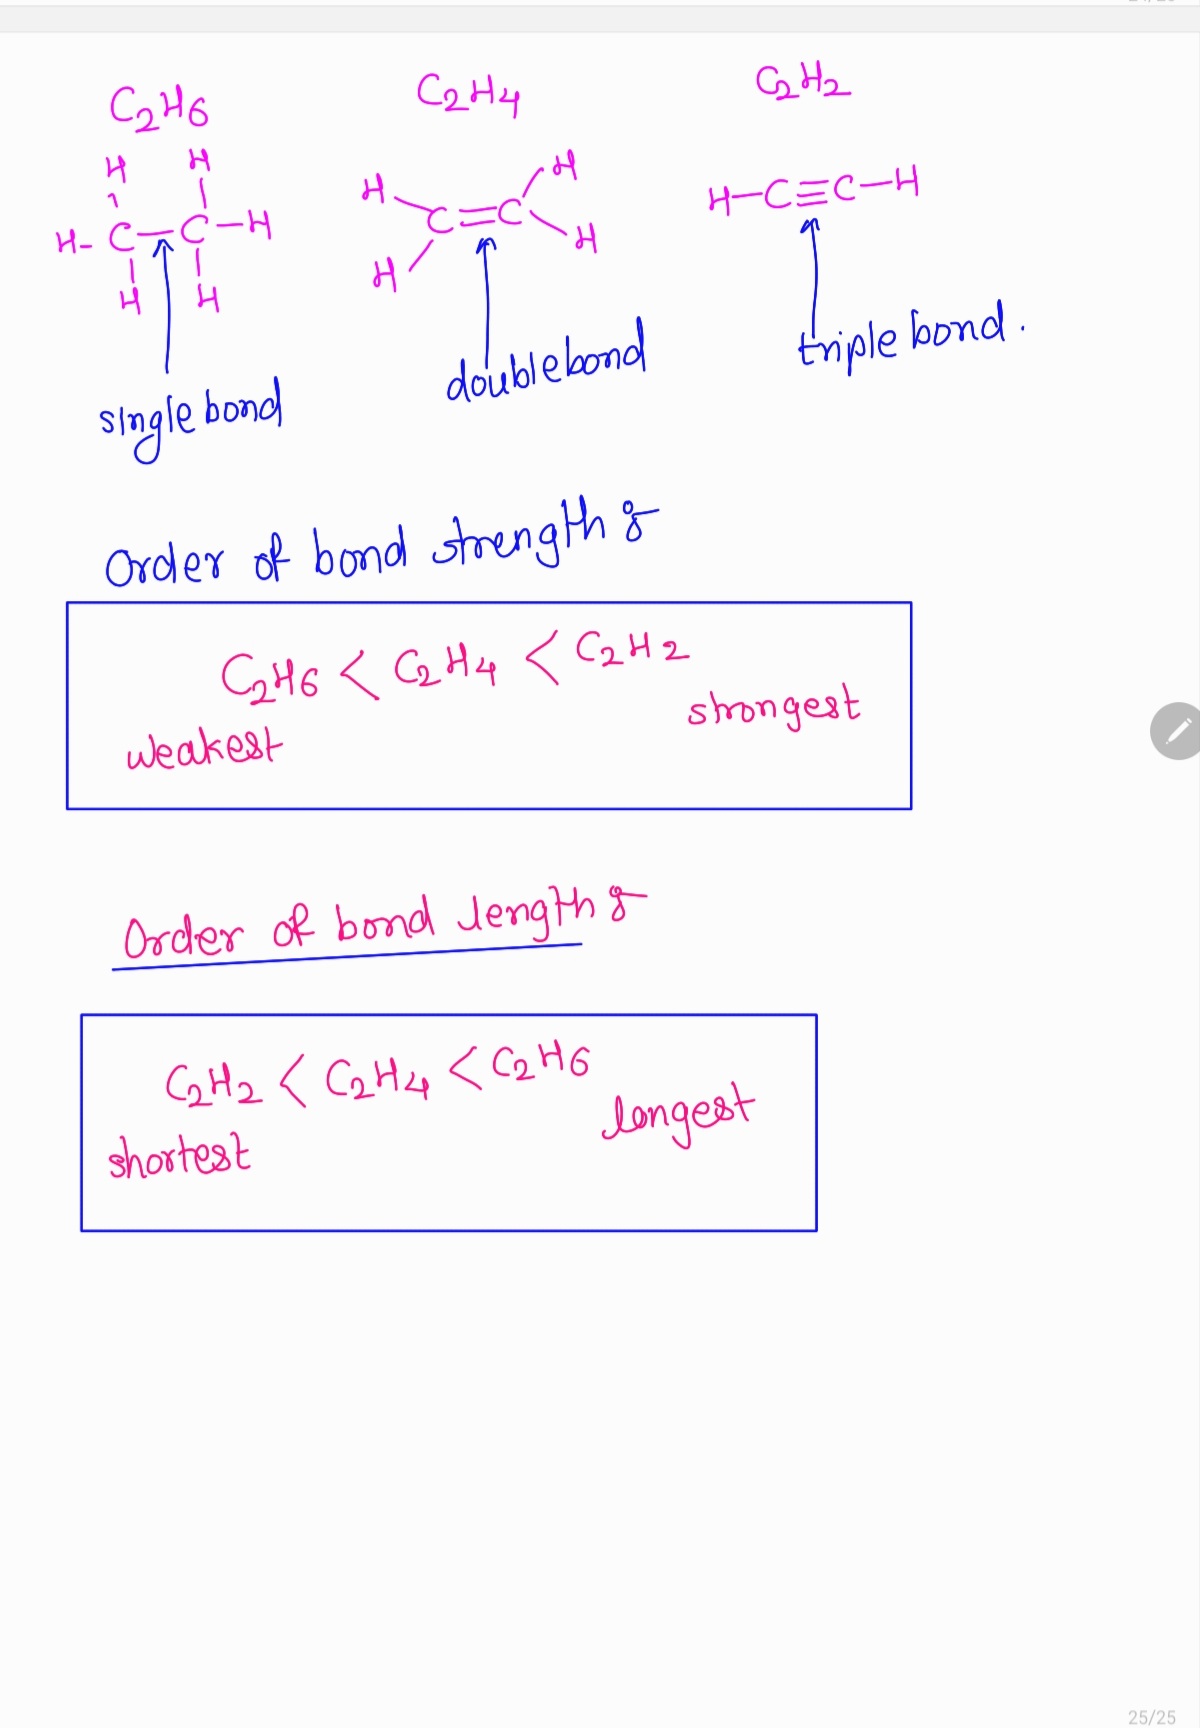 C2H6 C2H4 C2H2
H H
H-C-C-H
H H
H H
C=C
H H
H-C≡C-H
single bond
double bond
triple bond.
Order of bond strength :-
C2H6 < C2H4 < C2H2
weakest strongest
Order of bond length :-
C2H2 < C2H4 < C2H6
shortest longest
25/25